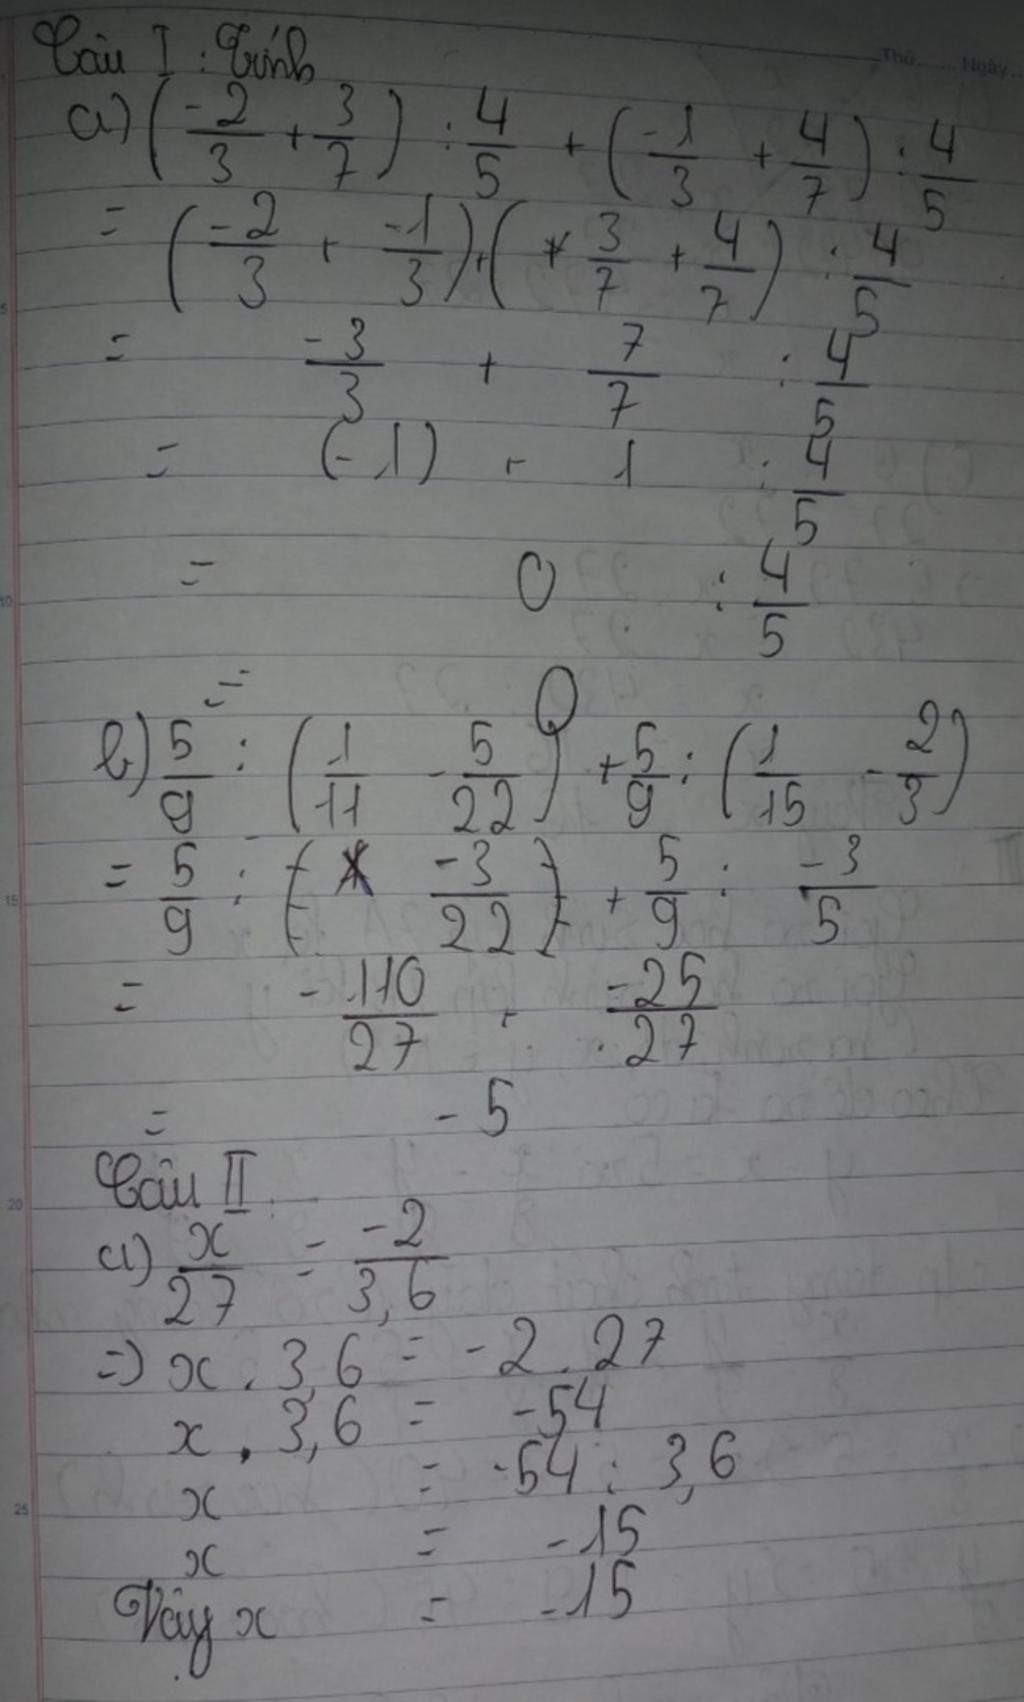 Thứ ...... Ngày ...
Câu I : Tính
a) (-2/3 + 3/7) : 4/5 + (-1/3 + 4/7) : 4/5
= (-2/3 + -1/3) + (3/7 + 4/7) : 4/5
= -3/3 + 7/7 : 4/5
= (-1) + 1 : 4/5
= 0 : 4/5
= 0
b) 5/9 : (1/11 - 5/22) + 5/9 : (1/15 - 2/3)
= 5/9 : (-3/22) + 5/9 : -3/5
= -110/27 + -25/27
= -5
Câu II
a) x/27 = -2/3,6
=> x . 3,6 = -2 . 27
x . 3,6 = -54
x = -54 : 3,6
x = -15
Vậy x = -15